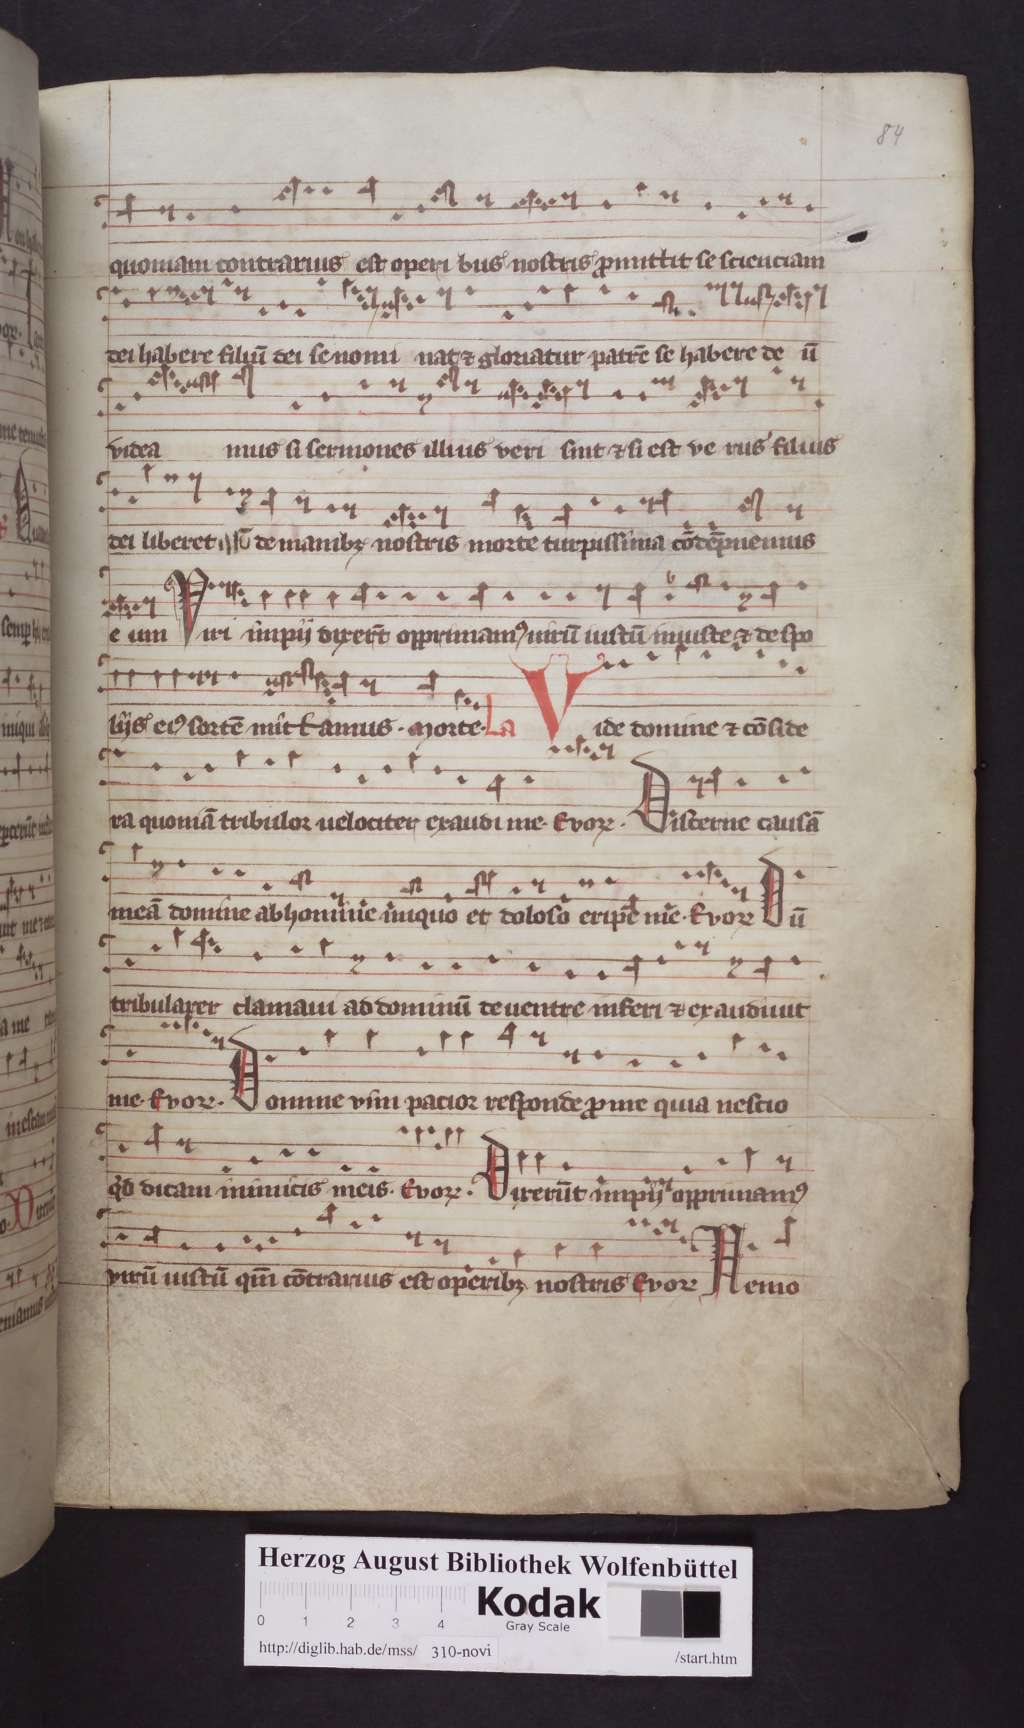 84
quoniam contrarius est operi bus nostris ꝓmittit se scienciam
dei habere filiū dei se nomi nat ⁊ gloriatur patrē se habere de ū
videa mus si sermones illius veri sint ⁊ si est ve rus filius
dei liberet de manibꝫ nostris morte turpissima cōdēpnemus
e um Viri impij dixerūt opprimamꝰ uirū iustū iniuste ⁊ de spo
lijs eiꝰ sortē mit t amus · morte · La Vide domine ⁊ cōside
ra quoniā tribulor velociter exaudi me · Evoꝝ · Discerne causā
meā domine ab homine iniquo et doloso eripe me · Evoꝝ Dū
tribularer clamavi ad dominū de ventre inferi ⁊ exaudivit
me · Evoꝝ · Domine vim pacior responde ꝓ me quia nescio
qd dicam inimicis meis · Evoꝝ · Dixerūt impij opprimamꝰ
virū iustū qm̄ cōtrarius est operibꝫ nostris Evoꝝ Nemo
Herzog August Bibliothek Wolfenbüttel
0 1 2 3 4
Kodak
Gray Scale
http://diglib.hab.de/mss/ 310-novi /start.htm